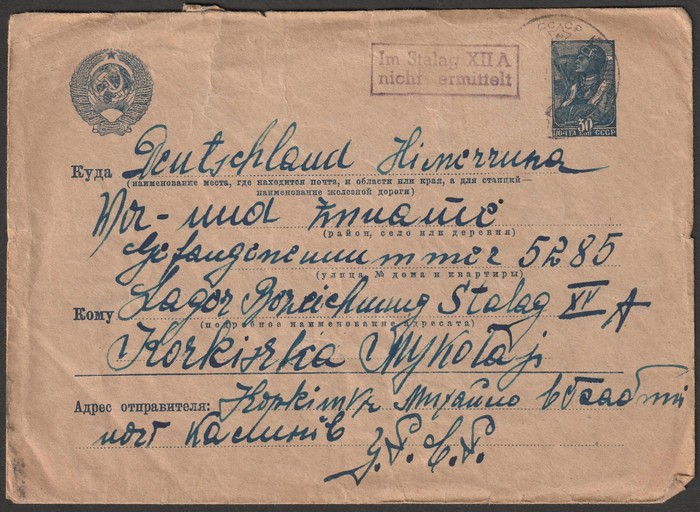 СССР
Im Stalag XII A
nicht ermittelt
30
ПОЧТА КОП СССР
Куда Deutschland Німеччина
(наименование места, где находится почта, и области или края, а для станций—
наименование железной дороги)
Vor- und Zuname
(район, село или деревня)
Gefangenenummer 5285
(улица, № дома и квартиры)
Кому Lager Bezeichnung Stalag XII A
(подробное наименование адресата)
Korkiszka Mykołaj
Адрес отправителя: Михайло
пошт Калинів
У.Р.С.Р.